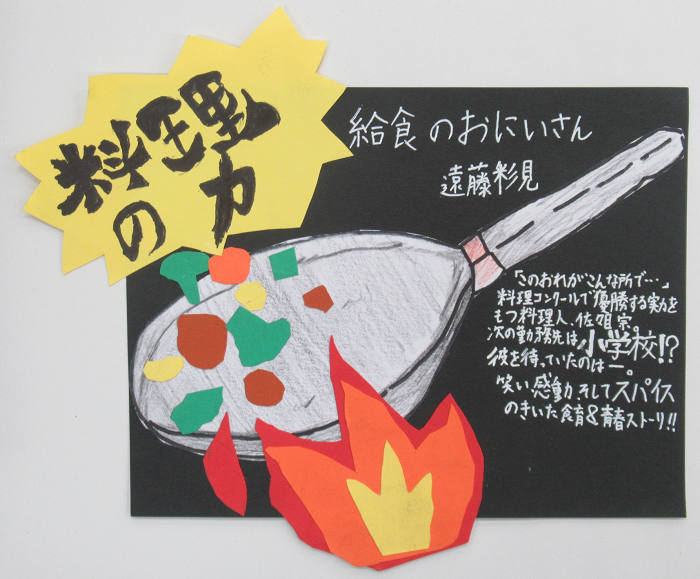 料理
の力
給食のおにいさん
遠藤彩見
「このおれがこんな所で…」
料理コンクールで優勝する実力を
もつ料理人、佐々目宗。
次の勤務先は小学校!?
彼を待っていたのは―。
笑い感動、そしてスパイス
のきいた食育&青春ストーリー!!